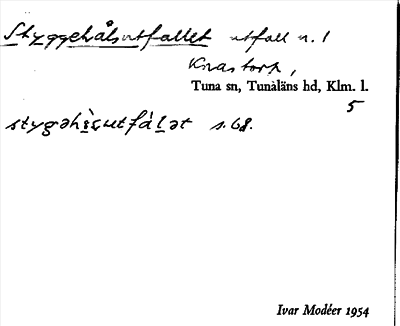 Styggehålsutfallet utfall n. 1
Knastorp,
Tuna sn, Tunaläns hd, Klm. l.
5
s. 68.
Ivar Modéer 1954